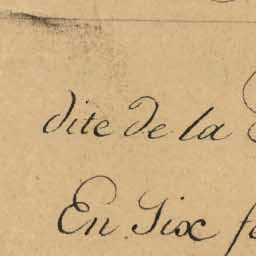 dite de la
En Six